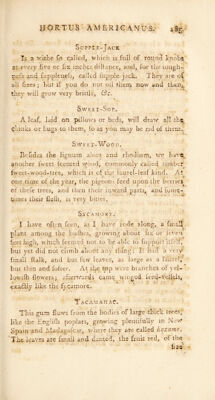 HORTUS AMERICANUS. 285
SUPPLE-JACK
Is a withe so called, which is full of round knobs
at every five or six inches distance, and, for the tough-
ness and suppleness, called supple-jack. They are of
all sizes; but if you do not oil them now and then,
they will grow very brittle, &c.
SWEET-SOP.
A leaf, laid on pillows or beds, will draw all the
chinks or bugs to them, so as you may be rid of them.
SWEET-WOOD.
Besides the lignum aloes and rhodium, we have
another sweet scented wood, commonly called timber
sweet-wood-trees, which is of the laurel-leaf kind. At
one time of the year, the pigeons feed upon the berries
of these trees, and then their inward parts, and some-
times their flesh, is very bitter.
SYCAMORE.
I have often seen, as I have rode along, a small
plant among the bushes, growing about six or seven
feet high, which seemed not to be able to support itself,
but yet did not climb about any thing: It had a very
small stalk, and but few leaves, as large as a laurel,
but thin and softer. At the top were branches of yel-
lowish flowers; afterwards came winged seed-vessels,
exactly like the sycamore.
TACAMAHAC.
This gum flows from the bodies of large thick trees,
like the English poplars, growing plentifully in New
Spain and Madagascar, where they are called
The leaves are small and dented, the fruit red, of the